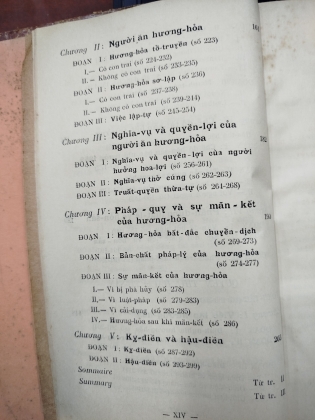 Chương II: Người ăn hương-hỏa
ĐOẠN I: Hương-hỏa tổ-truyền (số 223)
I.— Có con trai (số 224-232)
II.— Không có con trai (số 233-235)
ĐOẠN II: Hương-hỏa sơ-lập (số 236)
I.— Có con trai (số 237-238)
II.— Không có con trai (số 239-244)
ĐOẠN III: Việc lập-tự (số 245-254)
Chương III: Nghĩa-vụ và quyền-lợi của
người ăn hương-hỏa
ĐOẠN I: Nghĩa-vụ và quyền-lợi của người
hưởng hoa-lợi (số 256-261)
ĐOẠN II: Nghĩa-vụ thờ cúng (số 262-263)
ĐOẠN III: Truất-quyền thừa-tự (số 264-268)
Chương IV: Pháp-quy và sự mãn-kết
của hương-hỏa
ĐOẠN I: Hương-hỏa bất-đắc chuyển-dịch
(số 269-273)
ĐOẠN II: Bản-chất pháp-lý của hương-hỏa
(số 274-277)
ĐOẠN III: Sự mãn-kết của hương-hỏa
I.— Vì bị phá hủy (số 278)
II.— Vì luật-pháp (số 279-283)
III.— Vì cải-dụng (số 283-285)
IV.— Hương-hỏa sau khi mãn-kết (số 286)
Chương V: Kỵ-điền và hậu-điền
ĐOẠN I: Kỵ-điền (số 287-292)
ĐOẠN II: Hậu-điền (số 293-299)
Sommaire Từ tr.
Summary Từ tr.
— XIV —